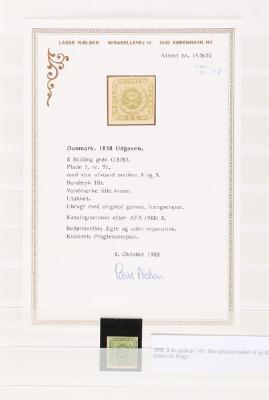 LASSE NIELSEN MIRABELLEVEJ 10 2400 KØBENHAVN NV
Attest nr.
Danmark. 1858 Udgaven.
8 Skilling grøn (1858).
Plade I, nr. 91,
med stor afstand mellem 8 og S.
Bundtryk IIb.
Vandmærke lille krone.
Utakket.
Ubrugt med original gummi, hængselspor.
Katalognummer efter AFA 1988: 8.
Bedømmelse: Ægte og uden reparation.
Kvalitet: Pragteksemplar.
8. Oktober 1988
Lasse Nielsen
1858. 8 sk. grøn pl. I-91. Stor afstand mellem 8 og S.
Attest LN. Pragt.